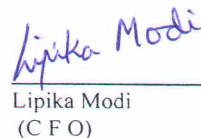 Lipika Modi
Lipika Modi
(C F O)